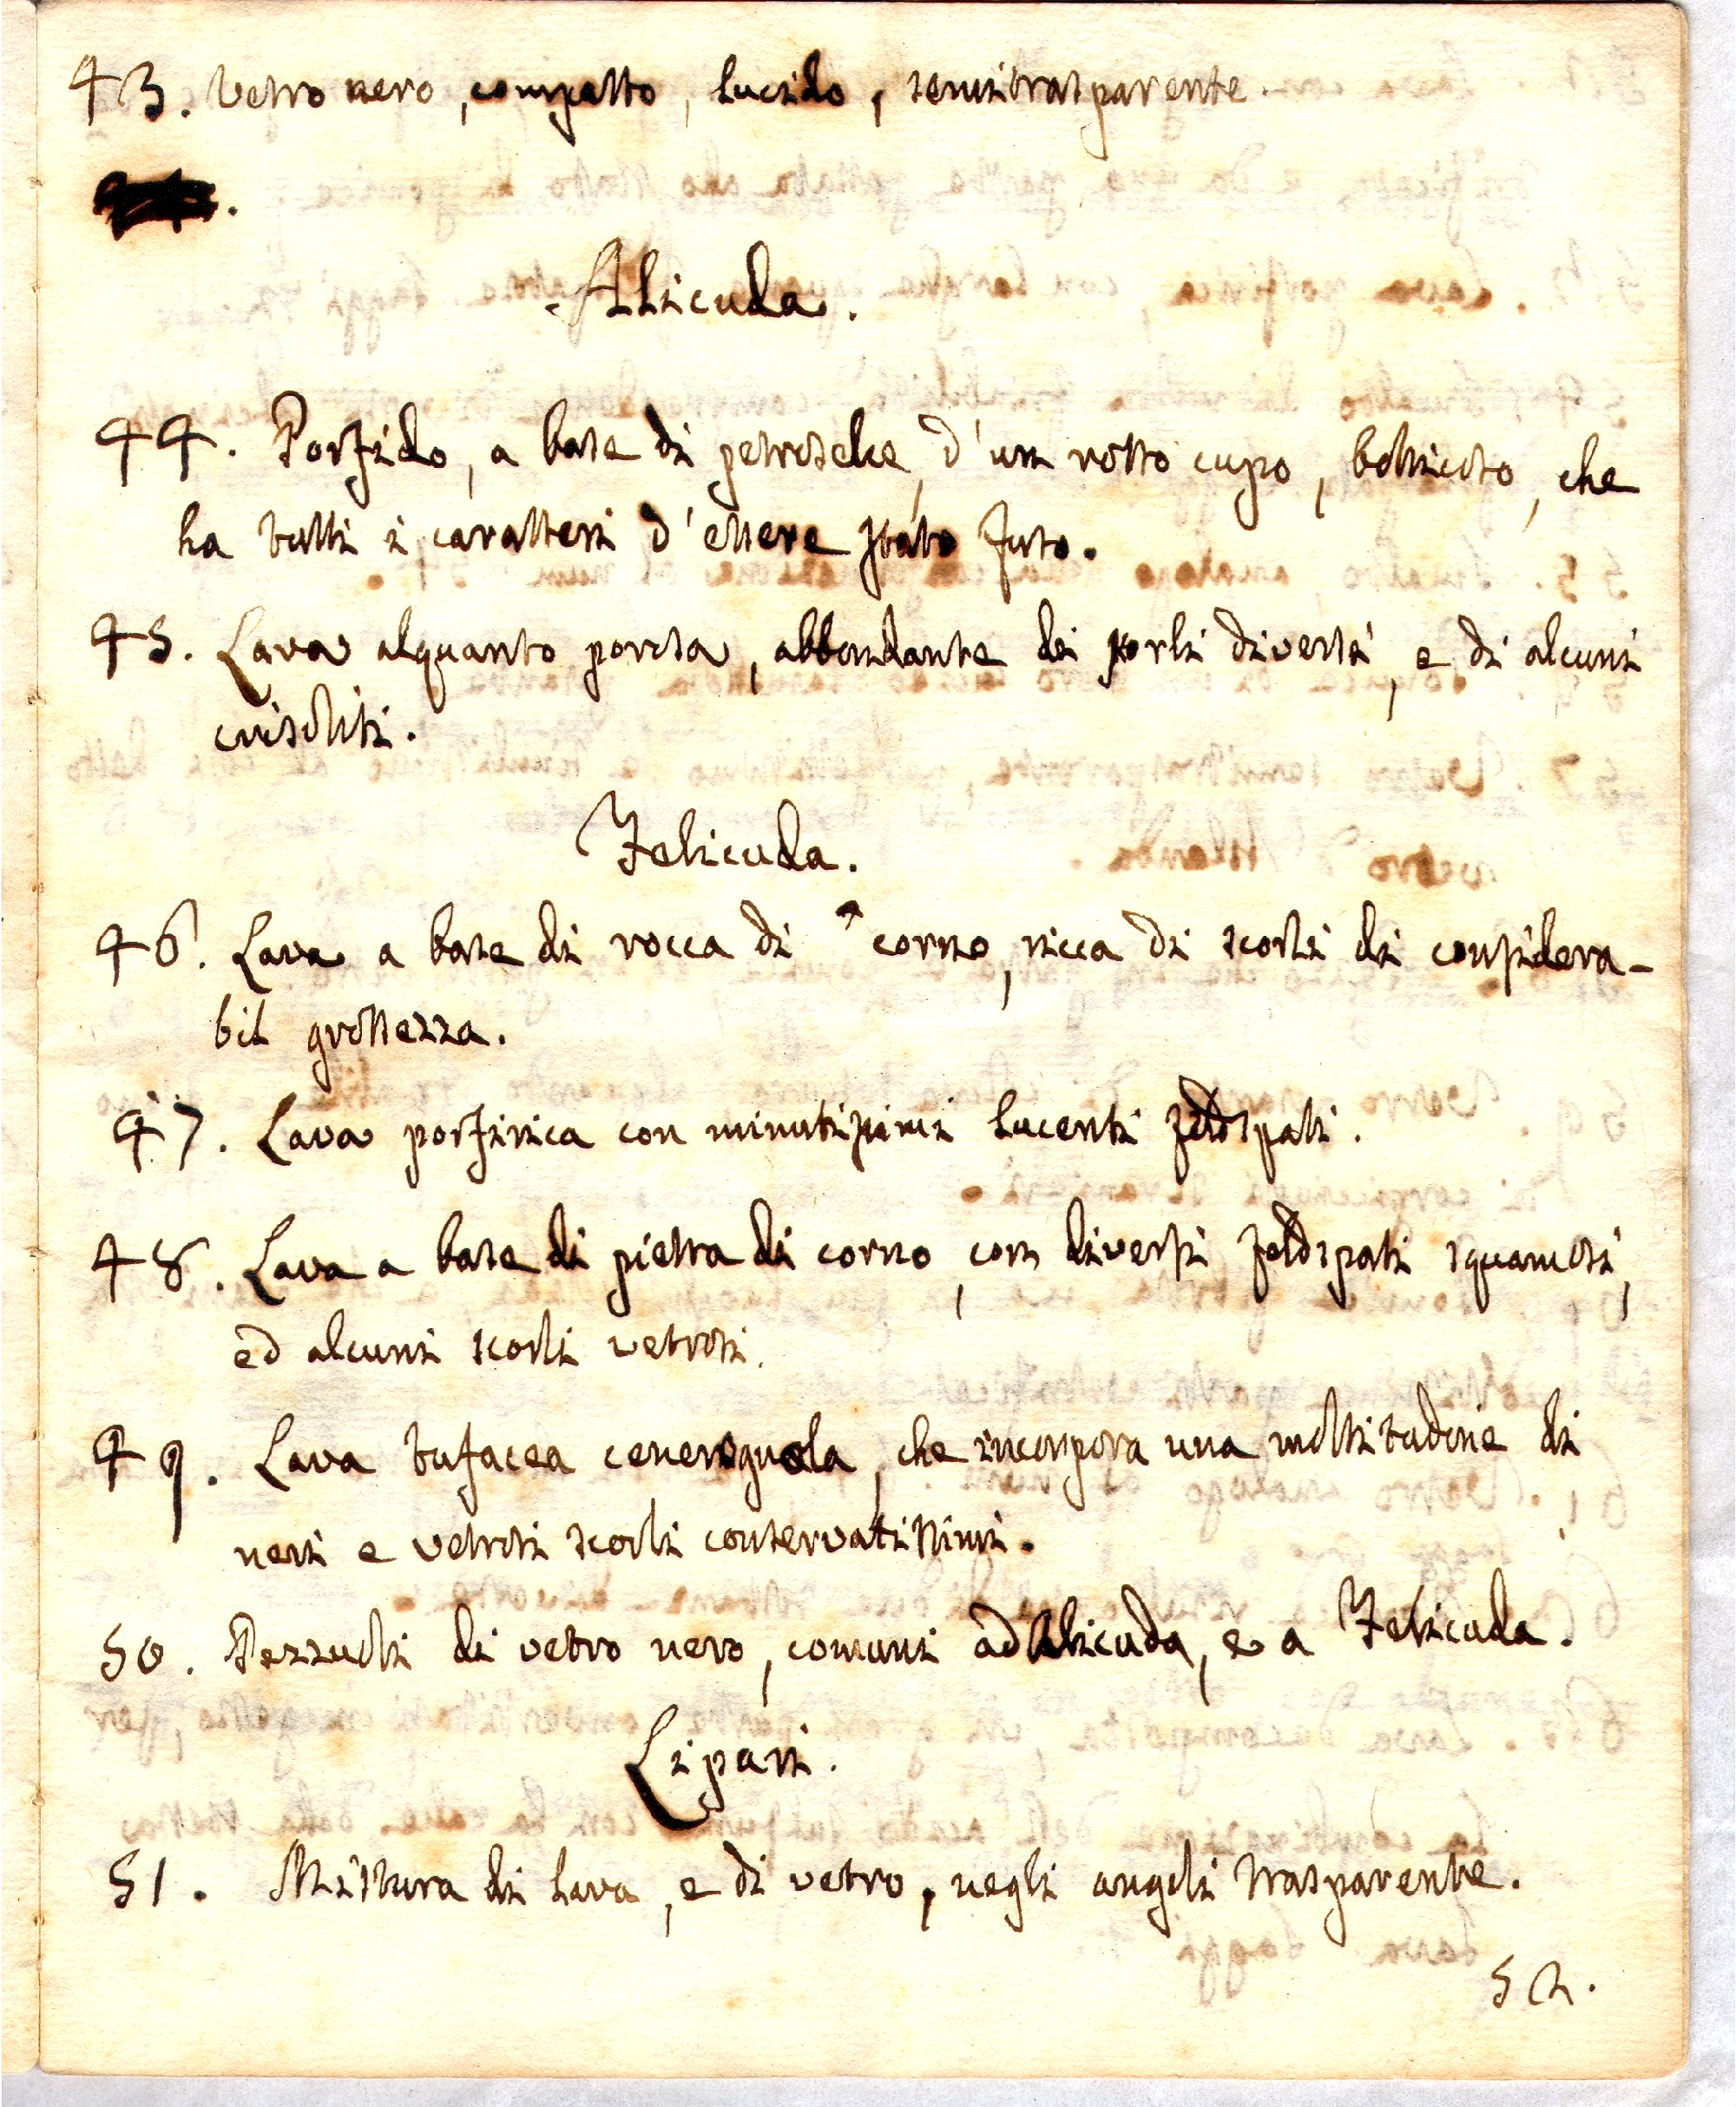 43. Vetro nero, compatto, lucido, semitrasparente.
Alicuda.
44. Porfido, a base di petroselce, d'un rosso cupo, bollicoso, che
ha tutti i caratteri d'essere stato fuso.
45. Lava alquanto porosa, abbondante di sorli diversi, e di alcuni
crisoliti.
Felicuda.
46. Lava a base di rocca di corno, ricca di scorli di considera-
bil grossezza.
47. Lava porfirica con minutissimi lucenti feldspati.
48. Lava a base di pietra di corno, con diversi feldspati squamosi,
ed alcuni scorli vetrosi.
49. Lava tufacea cenerognola, che incorpora una moltitudine di
neri e vetrosi scorli conservatissimi.
50. Pezzuoli di vetro nero, comuni ad Alicuda, e a Felicuda.
Lipari.
51. Mistura di lava, e di vetro, negli angoli trasparente.
52.